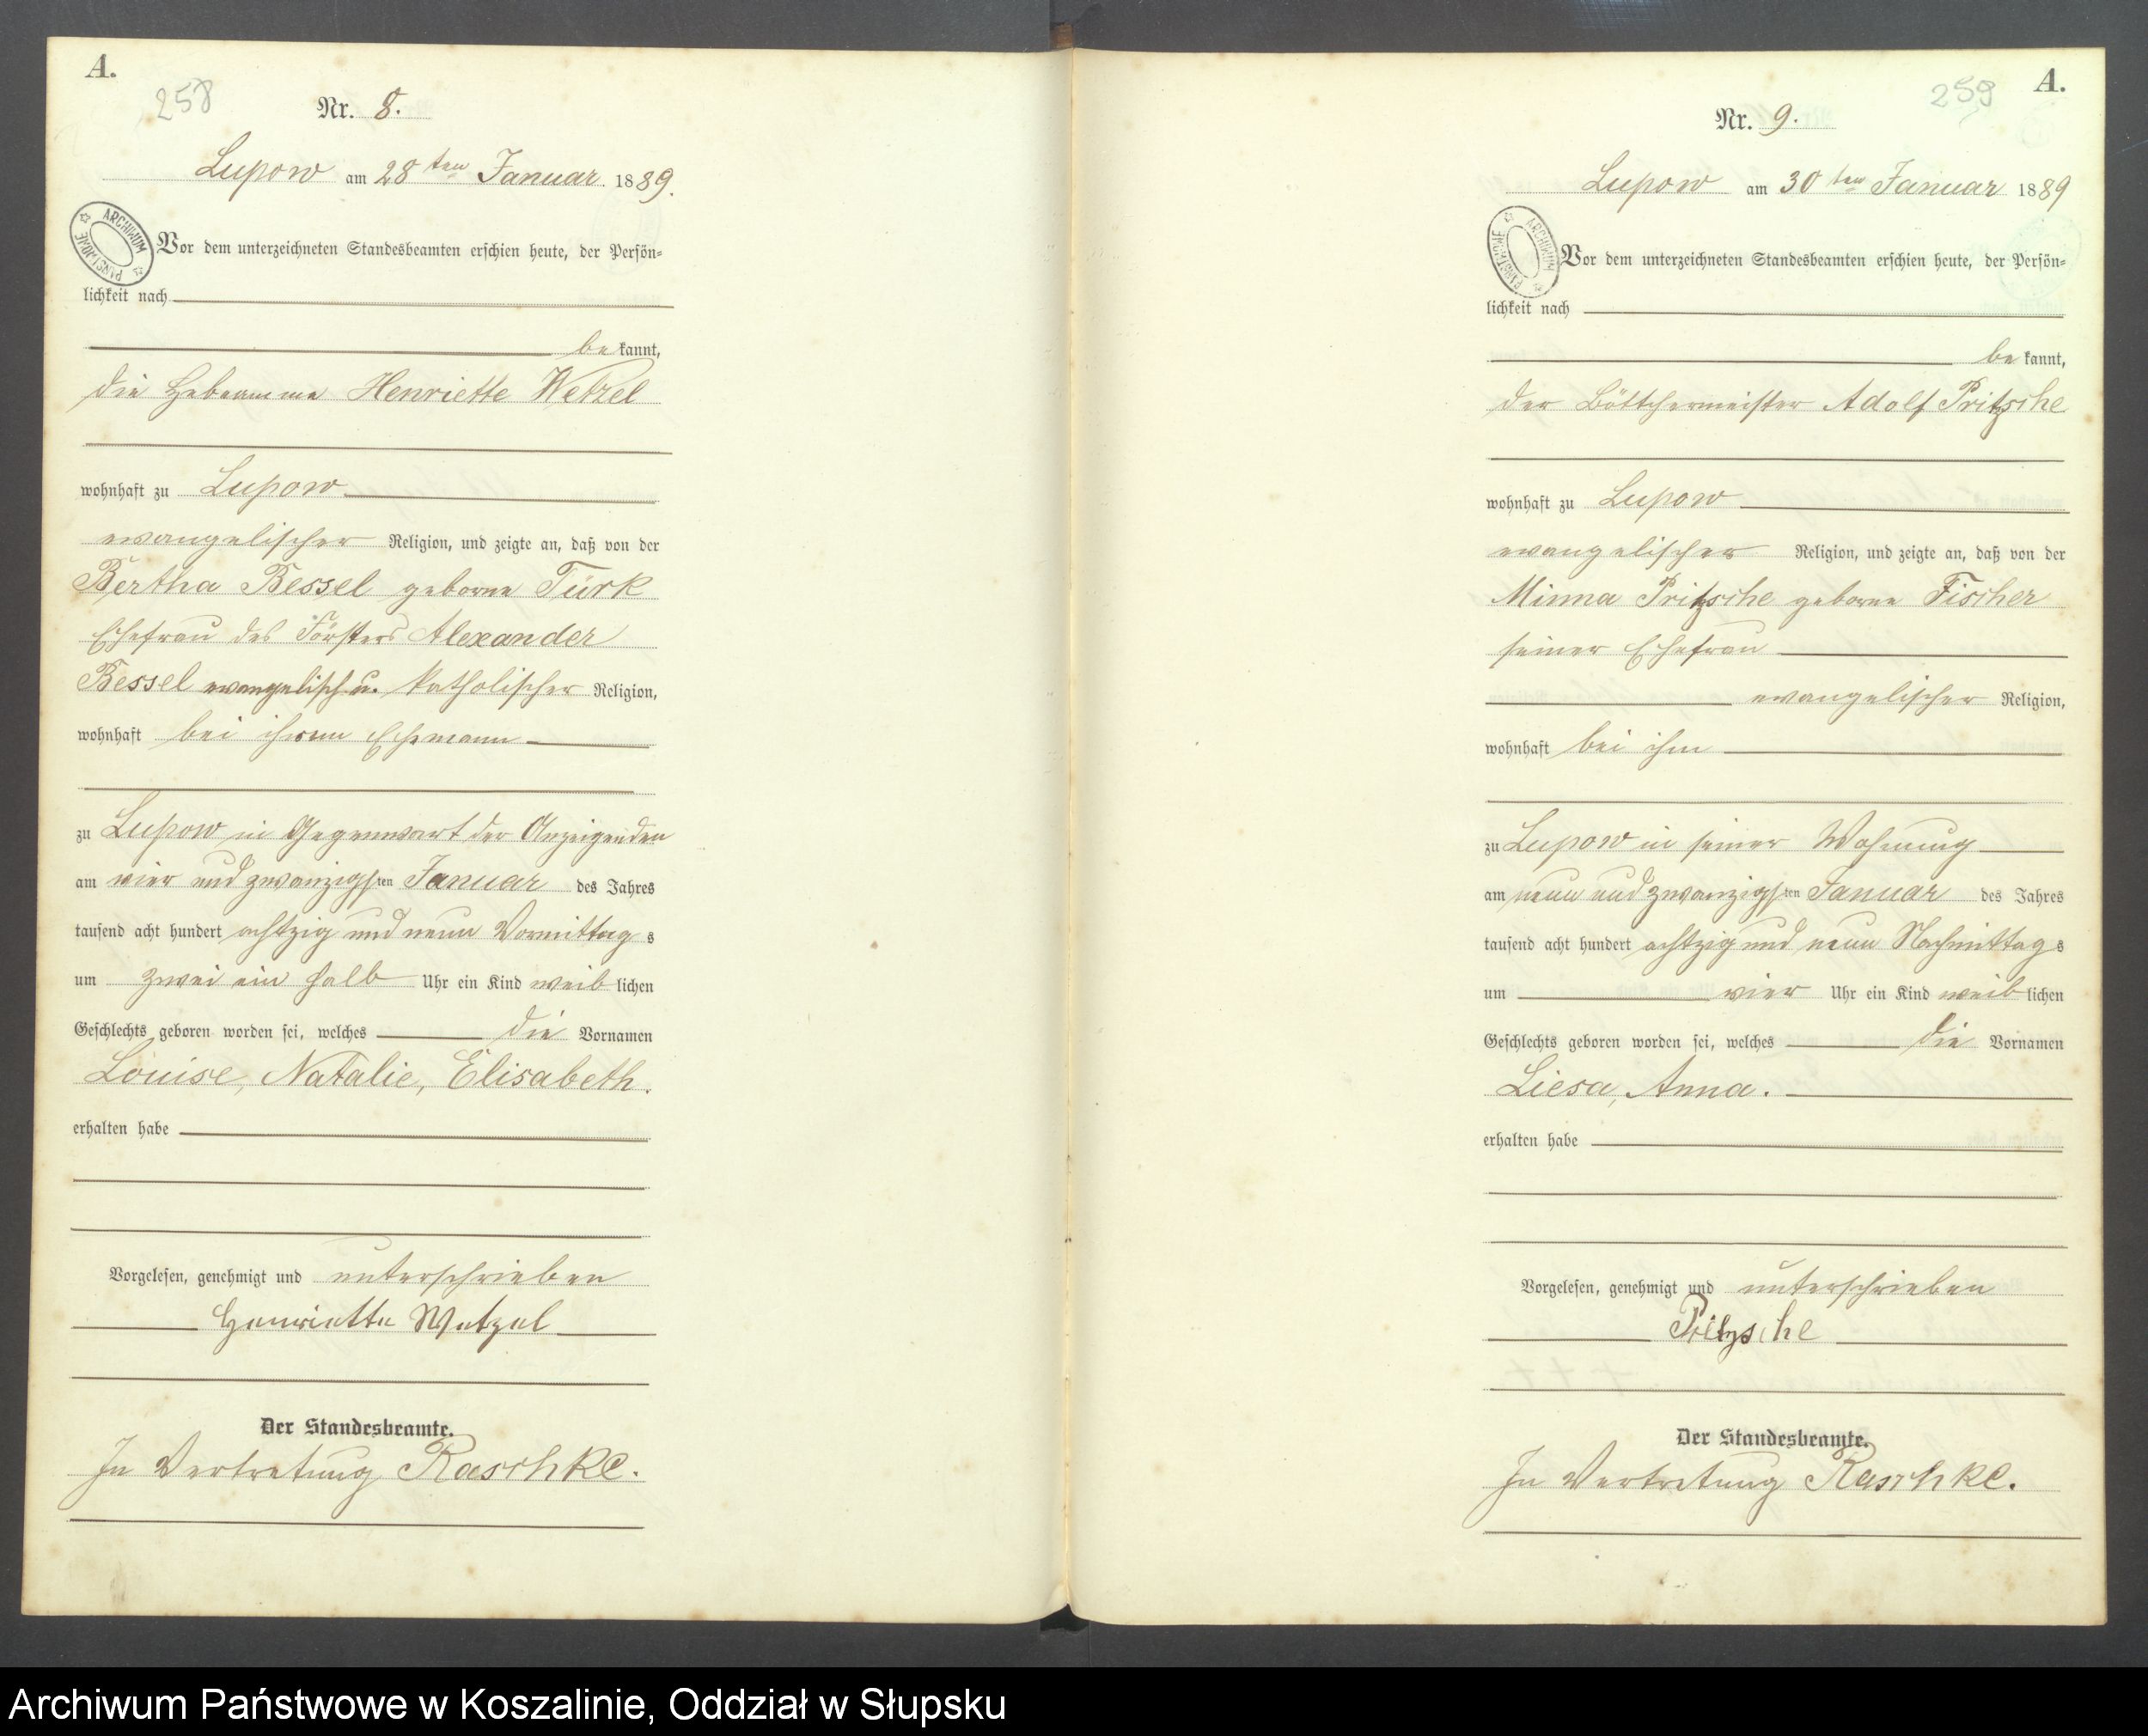 A.
258
Nr. 8.
Lupow am 28ten Januar 1889.
ARCHIWUM PAŃSTWOWE
Vor dem unterzeichneten Standesbeamten erschien heute, der Persön-
lichkeit nach
be kannt,
die Hebeamme Henriette Wetzel
wohnhaft zu Lupow
evangelischer Religion, und zeigte an, daß von der
Bertha Bessel geborne Türk
Ehefrau des Försters Alexander
Bessel evangelisch u. katholischer Religion,
wohnhaft bei ihrem Ehemann
zu Lupow in Gegenwart der Anzeigenden
am vier und zwanzigsten Januar des Jahres
tausend acht hundert achtzig und neun Vormittags
um zwei ein halb Uhr ein Kind weiblichen
Geschlechts geboren worden sei, welches die Vornamen
Louise, Natalie, Elisabeth.
erhalten habe
Vorgelesen, genehmigt und unterschrieben
Henriette Wetzel
Der Standesbeamte.
In Vertretung Raschke.
259
A.
Nr. 9.
Lupow am 30ten Januar 1889
ARCHIWUM PAŃSTWOWE
Vor dem unterzeichneten Standesbeamten erschien heute, der Persön-
lichkeit nach
be kannt,
der Böttchermeister Adolf Pritzsche
wohnhaft zu Lupow
evangelischer Religion, und zeigte an, daß von der
Minna Pritzsche geborne Fischer
seiner Ehefrau
evangelischer Religion,
wohnhaft bei ihm
zu Lupow in seiner Wohnung
am neun und zwanzigsten Januar des Jahres
tausend acht hundert achtzig und neun Nachmittags
um vier Uhr ein Kind weiblichen
Geschlechts geboren worden sei, welches die Vornamen
Liesa, Anna.
erhalten habe
Vorgelesen, genehmigt und unterschrieben
Pritzsche
Der Standesbeamte.
In Vertretung Raschke.
Archiwum Państwowe w Koszalinie, Oddział w Słupsku